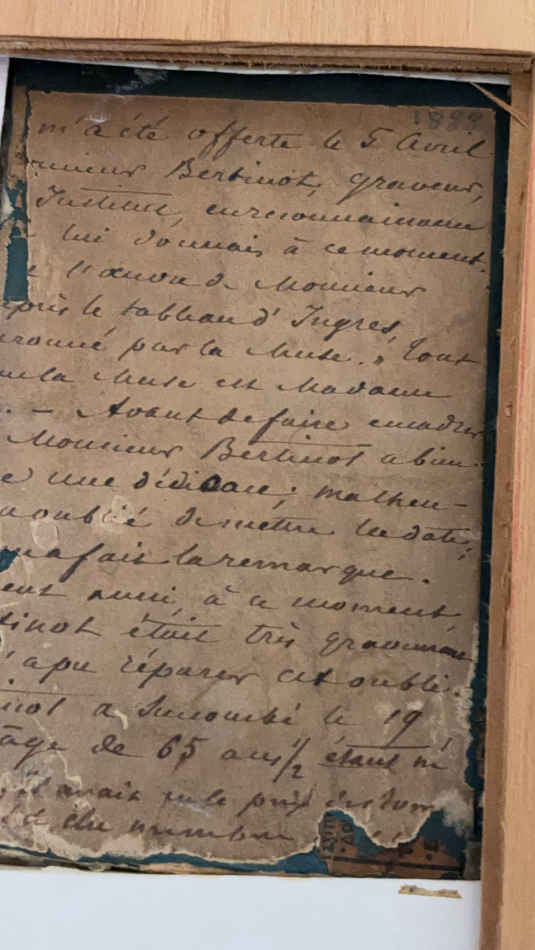 1888
m'a été offerte le 5 Avril
Bertinot, graveur,
Institut, en reconnaissance
lui donnais à ce moment
l'œuvre de Monsieur
le tableau d'Ingres,
par la Muse. Tout
la Muse est Madame
— Avant de faire encadrer
Monsieur Bertinot a bien
une dédicace; malheu-
oublié de mettre la date,
a fait la remarque.
aussi, à ce moment,
tinot était très gravement
a pu réparer cet oubli.
not a succombé le 19
âge de 65 ans 1/2 étant né
il avait eu le prix de Rome
élu membre